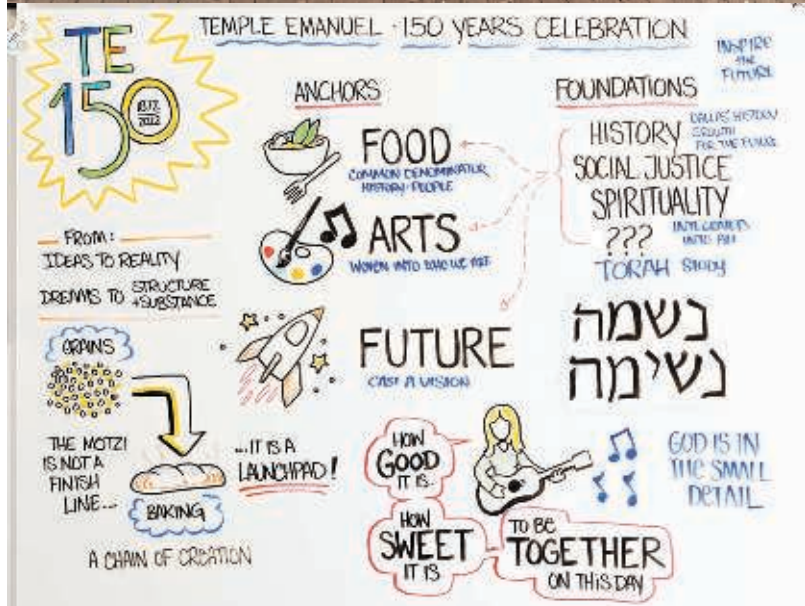 TEMPLE EMANUEL · 150 YEARS CELEBRATION
TE
150
1872
2022
INSPIRE
THE
FUTURE
ANCHORS
FOOD
COMMON DENOMINATOR
HISTORY · PEOPLE
ARTS
WOVEN INTO WHO WE ARE
FUTURE
CAST A VISION
FOUNDATIONS
HISTORY
DALLAS HISTORY
GROWTH
FOR THE FUTURE
SOCIAL JUSTICE
SPIRITUALITY
???
INTO ALL
TORAH STUDY
נשמה
נשימה
FROM:
IDEAS TO REALITY
DREAMS TO STRUCTURE
+SUBSTANCE
GRAINS
THE MOTZI
IS NOT A
FINISH
LINE...
BAKING
A CHAIN OF CREATION
...IT IS A
LAUNCHPAD!
HOW
GOOD
IT IS...
HOW
SWEET
IT IS
TO BE
TOGETHER
ON THIS DAY
GOD IS IN
THE SMALL
DETAIL